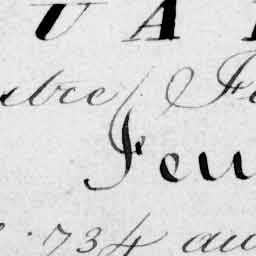 U A
stre Fe
Feu
734 au